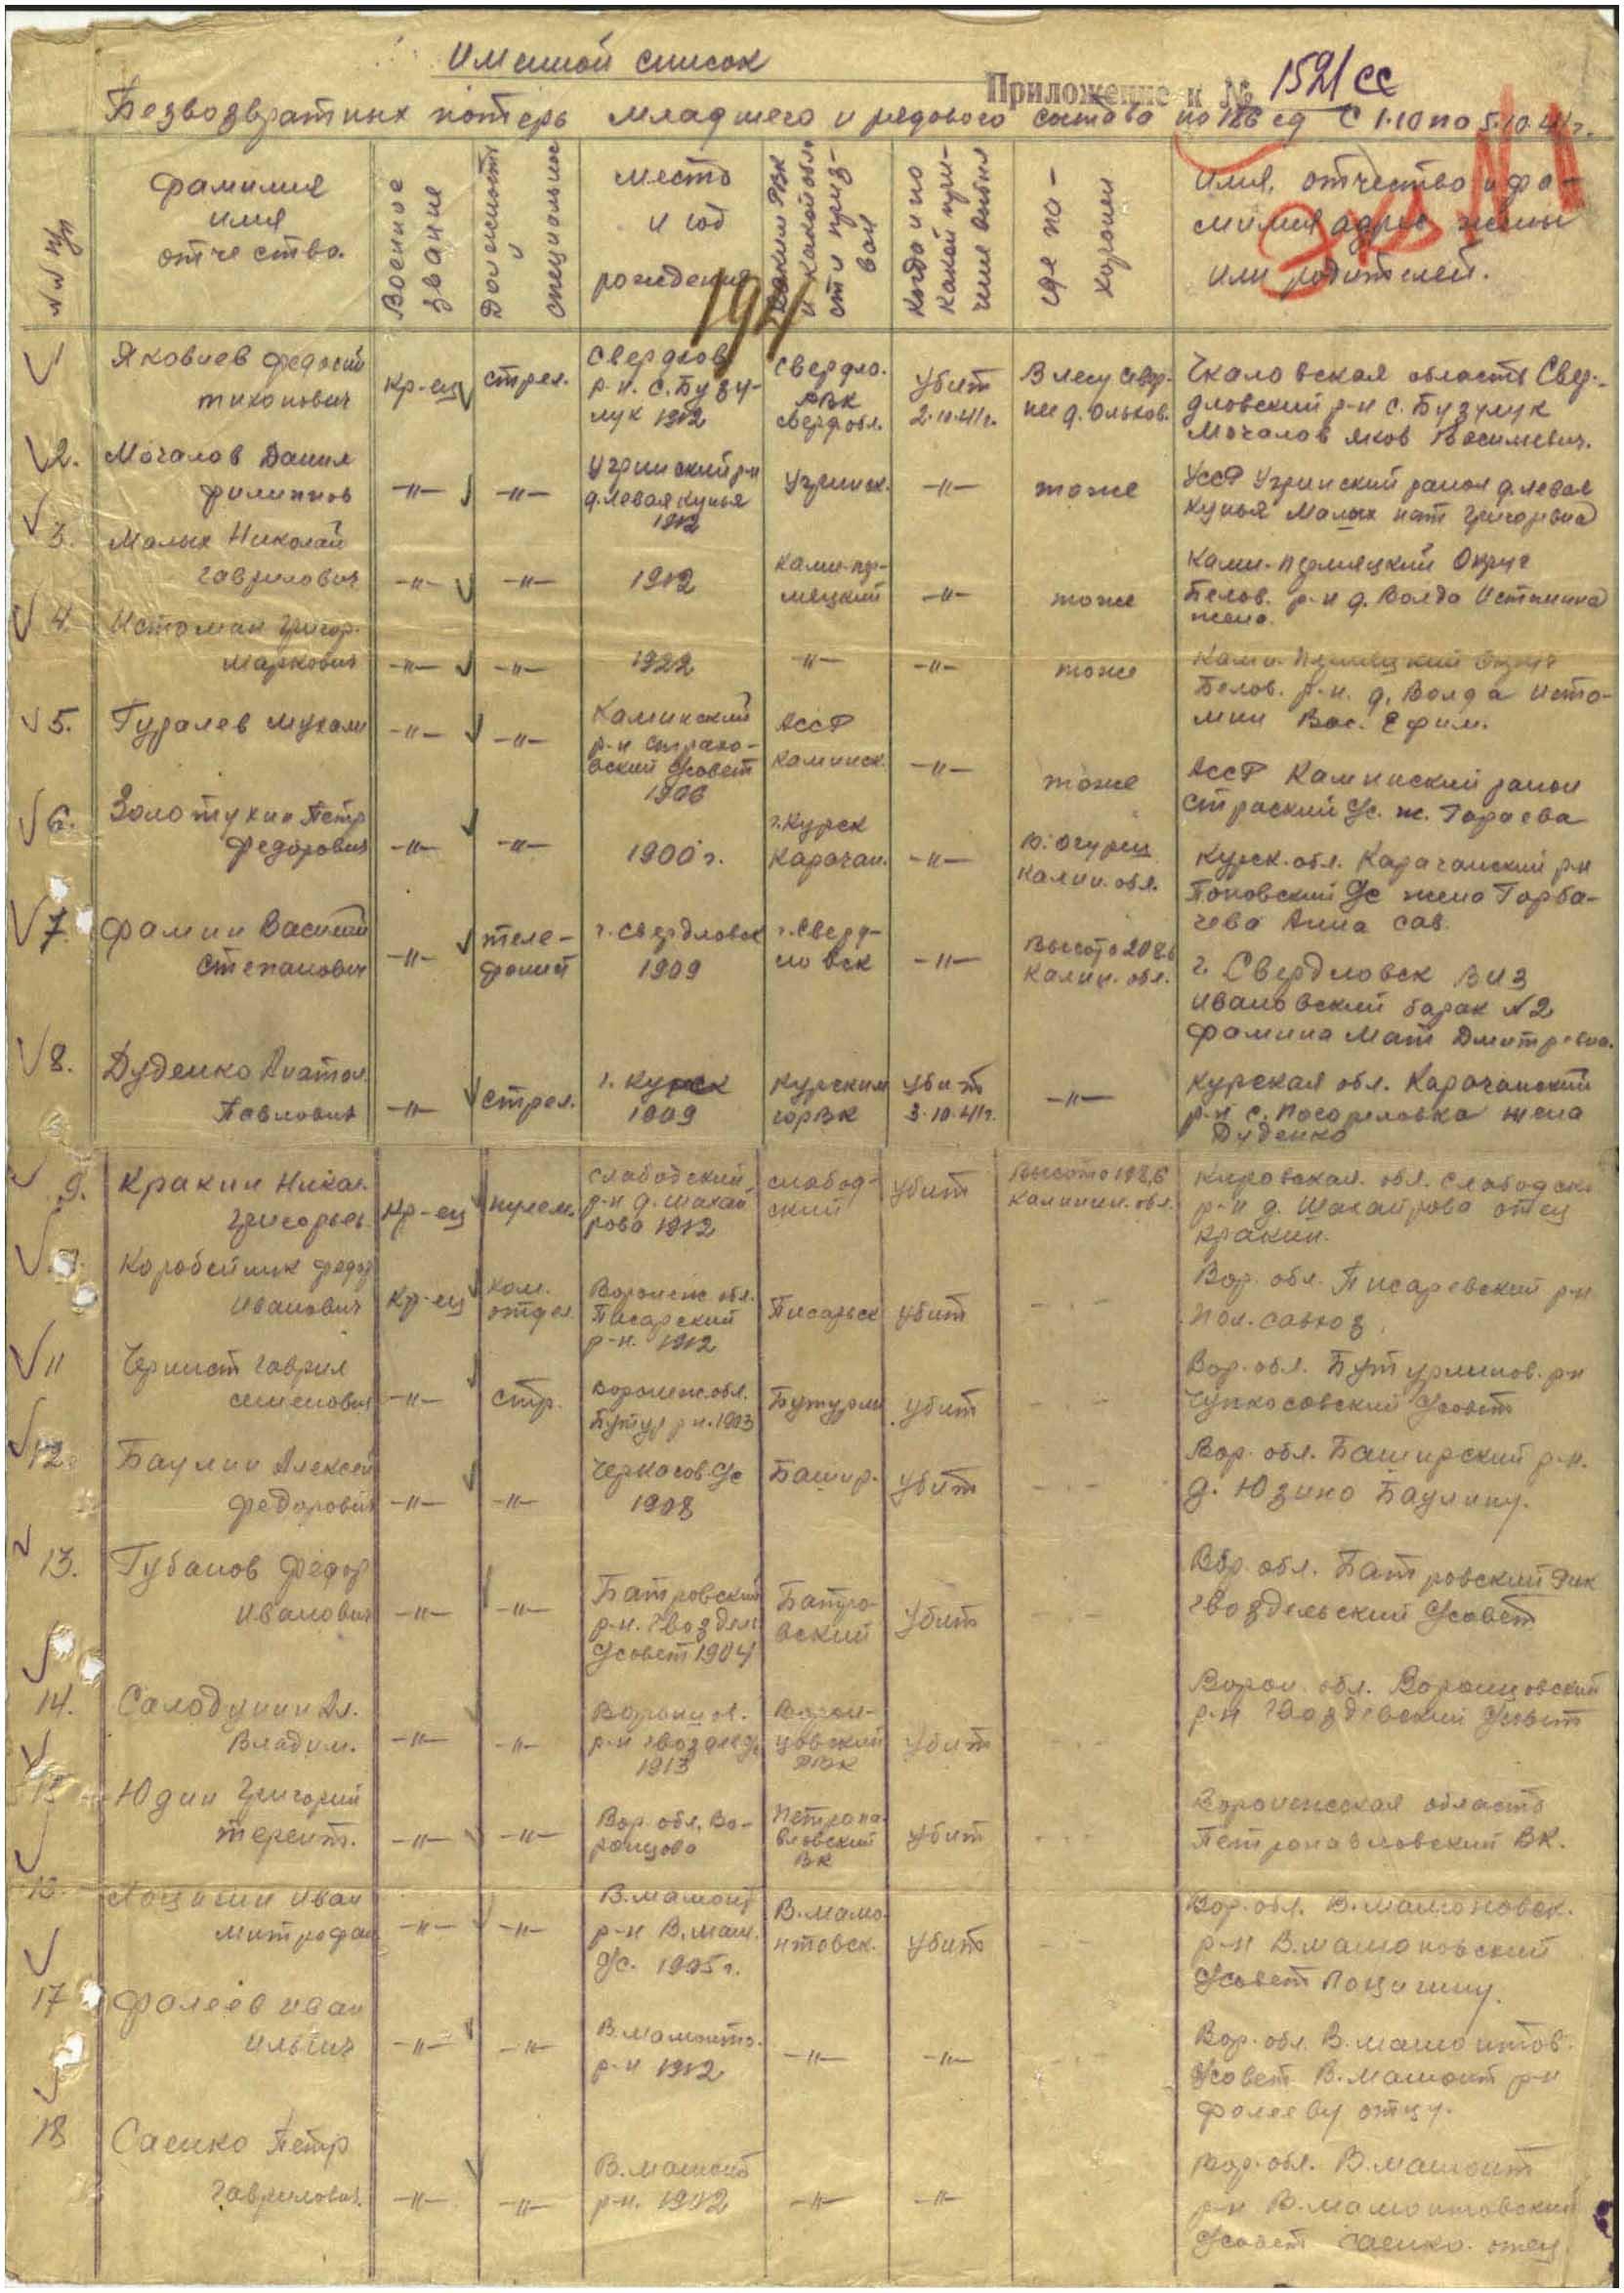 Именной список
Приложение к № 1521/сс
Безвозвратных потерь младшего и рядового состава по 186 сд с 1.10 по 5.10.41г.
№№ п/п
фамилия
имя
отчество.
Военное
звание
Должность
и
специальность
место
и год
рождения
Каким РВК
и какой обла
сти приз-
ван
когда и по
какой при-
чине выбыл
где по-
хоронен
имя, отчество и фа-
милия адрес жены
или родителей.
194
Экз №1
1 Яковлев Федосий
тихонович
кр-ец
стрел.
Свердлов
р-н. с. Бузу-
лук 1912
Свердло.
РВК
свердобл.
Убит
2.10.41г.
В лесу север-
нее д. Ольхов.
Чкаловская область Свер-
дловский р-н с. Бузулук
Мочалов Яков Василиевич.
2. Мочалов Данил
филиппов
-"-
-"-
Угринский р-н
д. Левая Кунья
1912
Угринск.
-"-
тоже
УССР Угринский район д. Левая
Кунья Малых нат Григорьевна
3. Малых Николай
гаврилович
-"-
-"-
1912
Ками-пер-
мецкий
-"-
тоже
Ками-пермяцкий Округ
Белов. р-н д. Волда Истомина
жена.
4. Истоман Григор.
маркович
-"-
-"-
1922
-"-
-"-
тоже
Ками-Пермяцкий Округ
Белов. р-н. д. Волда исто-
мин Вас. Ефим.
5. Гуралев Мухам
-"-
-"-
Каминский
р-н страхо-
вский С/совет
1906
АССР
Каминск.
-"-
тоже
АССР Каминский район
Страский С/с. ж. Гараева
6. Золотухин Петр
Федорович
-"-
-"-
1900г.
г. Курск
Карачан.
-"-
ю. Огурец
Калин. обл.
Курск. обл. Карачанский р-н
Поповский С/с жена Горба-
чева Анна сав.
7. Фамин Василий
Степанович
-"-
теле-
фонист
г. Свердловск
1909
г. Сверд-
ловск
-"-
Высота 208,6
Калин. обл.
г. Свердловск ВИЗ
Ивановский барак №2
Фамина Мат Дмитревна.
8. Дуденко Анатол.
Павлович
-"-
стрел.
г. Курск
1909
Курским
горВК
Убит
3.10.41г.
-"-
Курская обл. Карачанский
р-н с. Погореловка жена
Дуденко
9. Кракин Никол.
Григорьев.
кр-ец
пулем.
Слабодский
р-н д. Шахай
рова 1912
слабод-
ский
Убит
Высота 198,6
Калинин. обл.
Кировская. обл. Слободск.
р-н д. Шахайрова отец
Кракин.
Коробейник Федор
Иванович
кр-ец
ком.
отдел.
Воронеж обл.
Писарский
р-н. 1912
Писарьск
убит
- . -
Вор. обл. Писаревский р-н
Пол. савюз.
11 Чернист Гаврил
семенович
-"-
стр.
Воронеж. обл.
Бутур р-н. 1903
Бутурли
Убит
- . -
Вор. обл. Бутурлинов. р-н
Чупкосовский С/совет
12. Баулин Алексей
Федорович
-"-
-"-
Черкасов С/с
1908
Башир.
Убит
- . -
Вор. обл. Баширский р-н.
д. Юзино Баулину.
13. Губанов Федор
Иванович
-"-
-"-
Батровский
р-н. Гвоздел
С/совет 1904
Батро-
вский
Убит
- . -
Вор. обл. Батровский Рик
Гвоздельский С/совет
14. Салодунин Ал.
Владим.
-"-
-"-
Воронцов.
р-н гвоздев.
1913
Ворон-
цовский
РВК
Убит
- . -
Ворон. обл. Воронцовский
р-н Гвоздевский С/совет
15 Юдин Григорий
терент.
-"-
-"-
Вор. обл. Во-
ронцово
Петропа-
вловский
ВК
Убит
- . -
Воронежская область
Петропавловский ВК.
16. Лощинин Иван
митрофан
-"-
-"-
В. мамонт
р-н В. мам.
С/с. 1905г.
В. мамо-
нтовск.
Убит
- . -
Вор. обл. В. мамоновск.
р-н В. мамоновский
С/совет Лощинину.
17 Фалеев Иван
Ильич
-"-
-"-
В. мамонто.
р-н 1912
-"-
-"-
- . -
Вор. обл. В. мамонтов.
С/совет В. мамонт р-н
Фалееву отцу.
18 Саенко Петр
Гаврилович.
-"-
-"-
В. мамонт
р-н. 1902
-"-
-"-
Вор. обл. В. мамонт
р-н В. мамонтовский
С/совет Саенко. отец